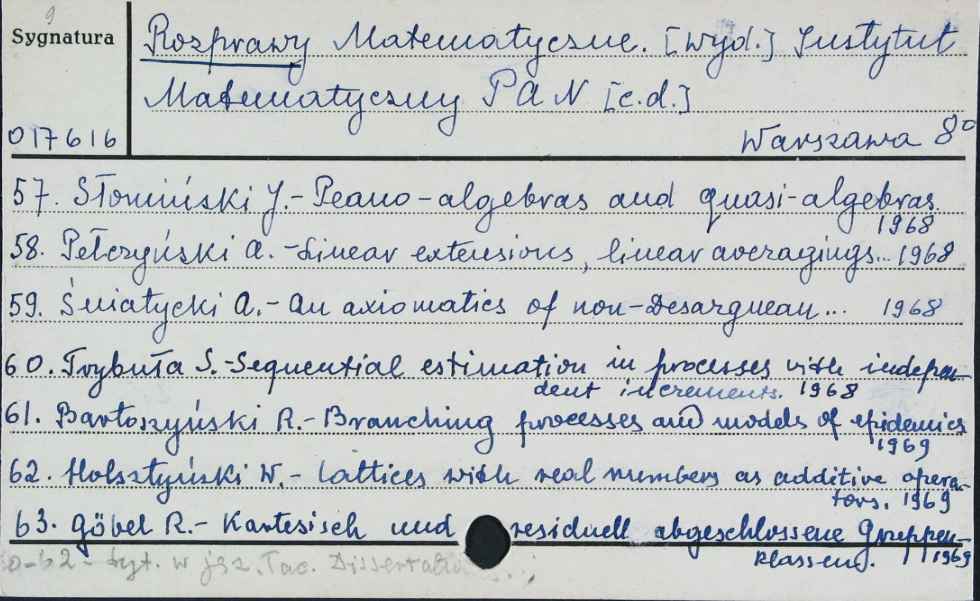 9
Sygnatura
Rozprawy Matematyczne. [Wyd.] Instytut
Matematyczny PAN [c.d.]
017616
Warszawa 8°
57. Słomiński J.- Peano-algebras and quasi-algebras.
1968
58. Pełczyński A.-Linear extensions, linear averagings... 1968
59. Świątycki A.- An axiomatics of non-Desarguean... 1968
60. Trybuła S.-Sequential estimation in processes with indepen-
dent increments. 1968
61. Bartoszyński R.- Branching processes and models of epidemics
1969
62. Holsztyński W.- Lattices with real numbers as additive opera-
tors. 1969
63. Göbel R.- Kartesisch und residuell abgeschlossene Gruppen-
klassen. 1969
tyt. w jęz. łac.